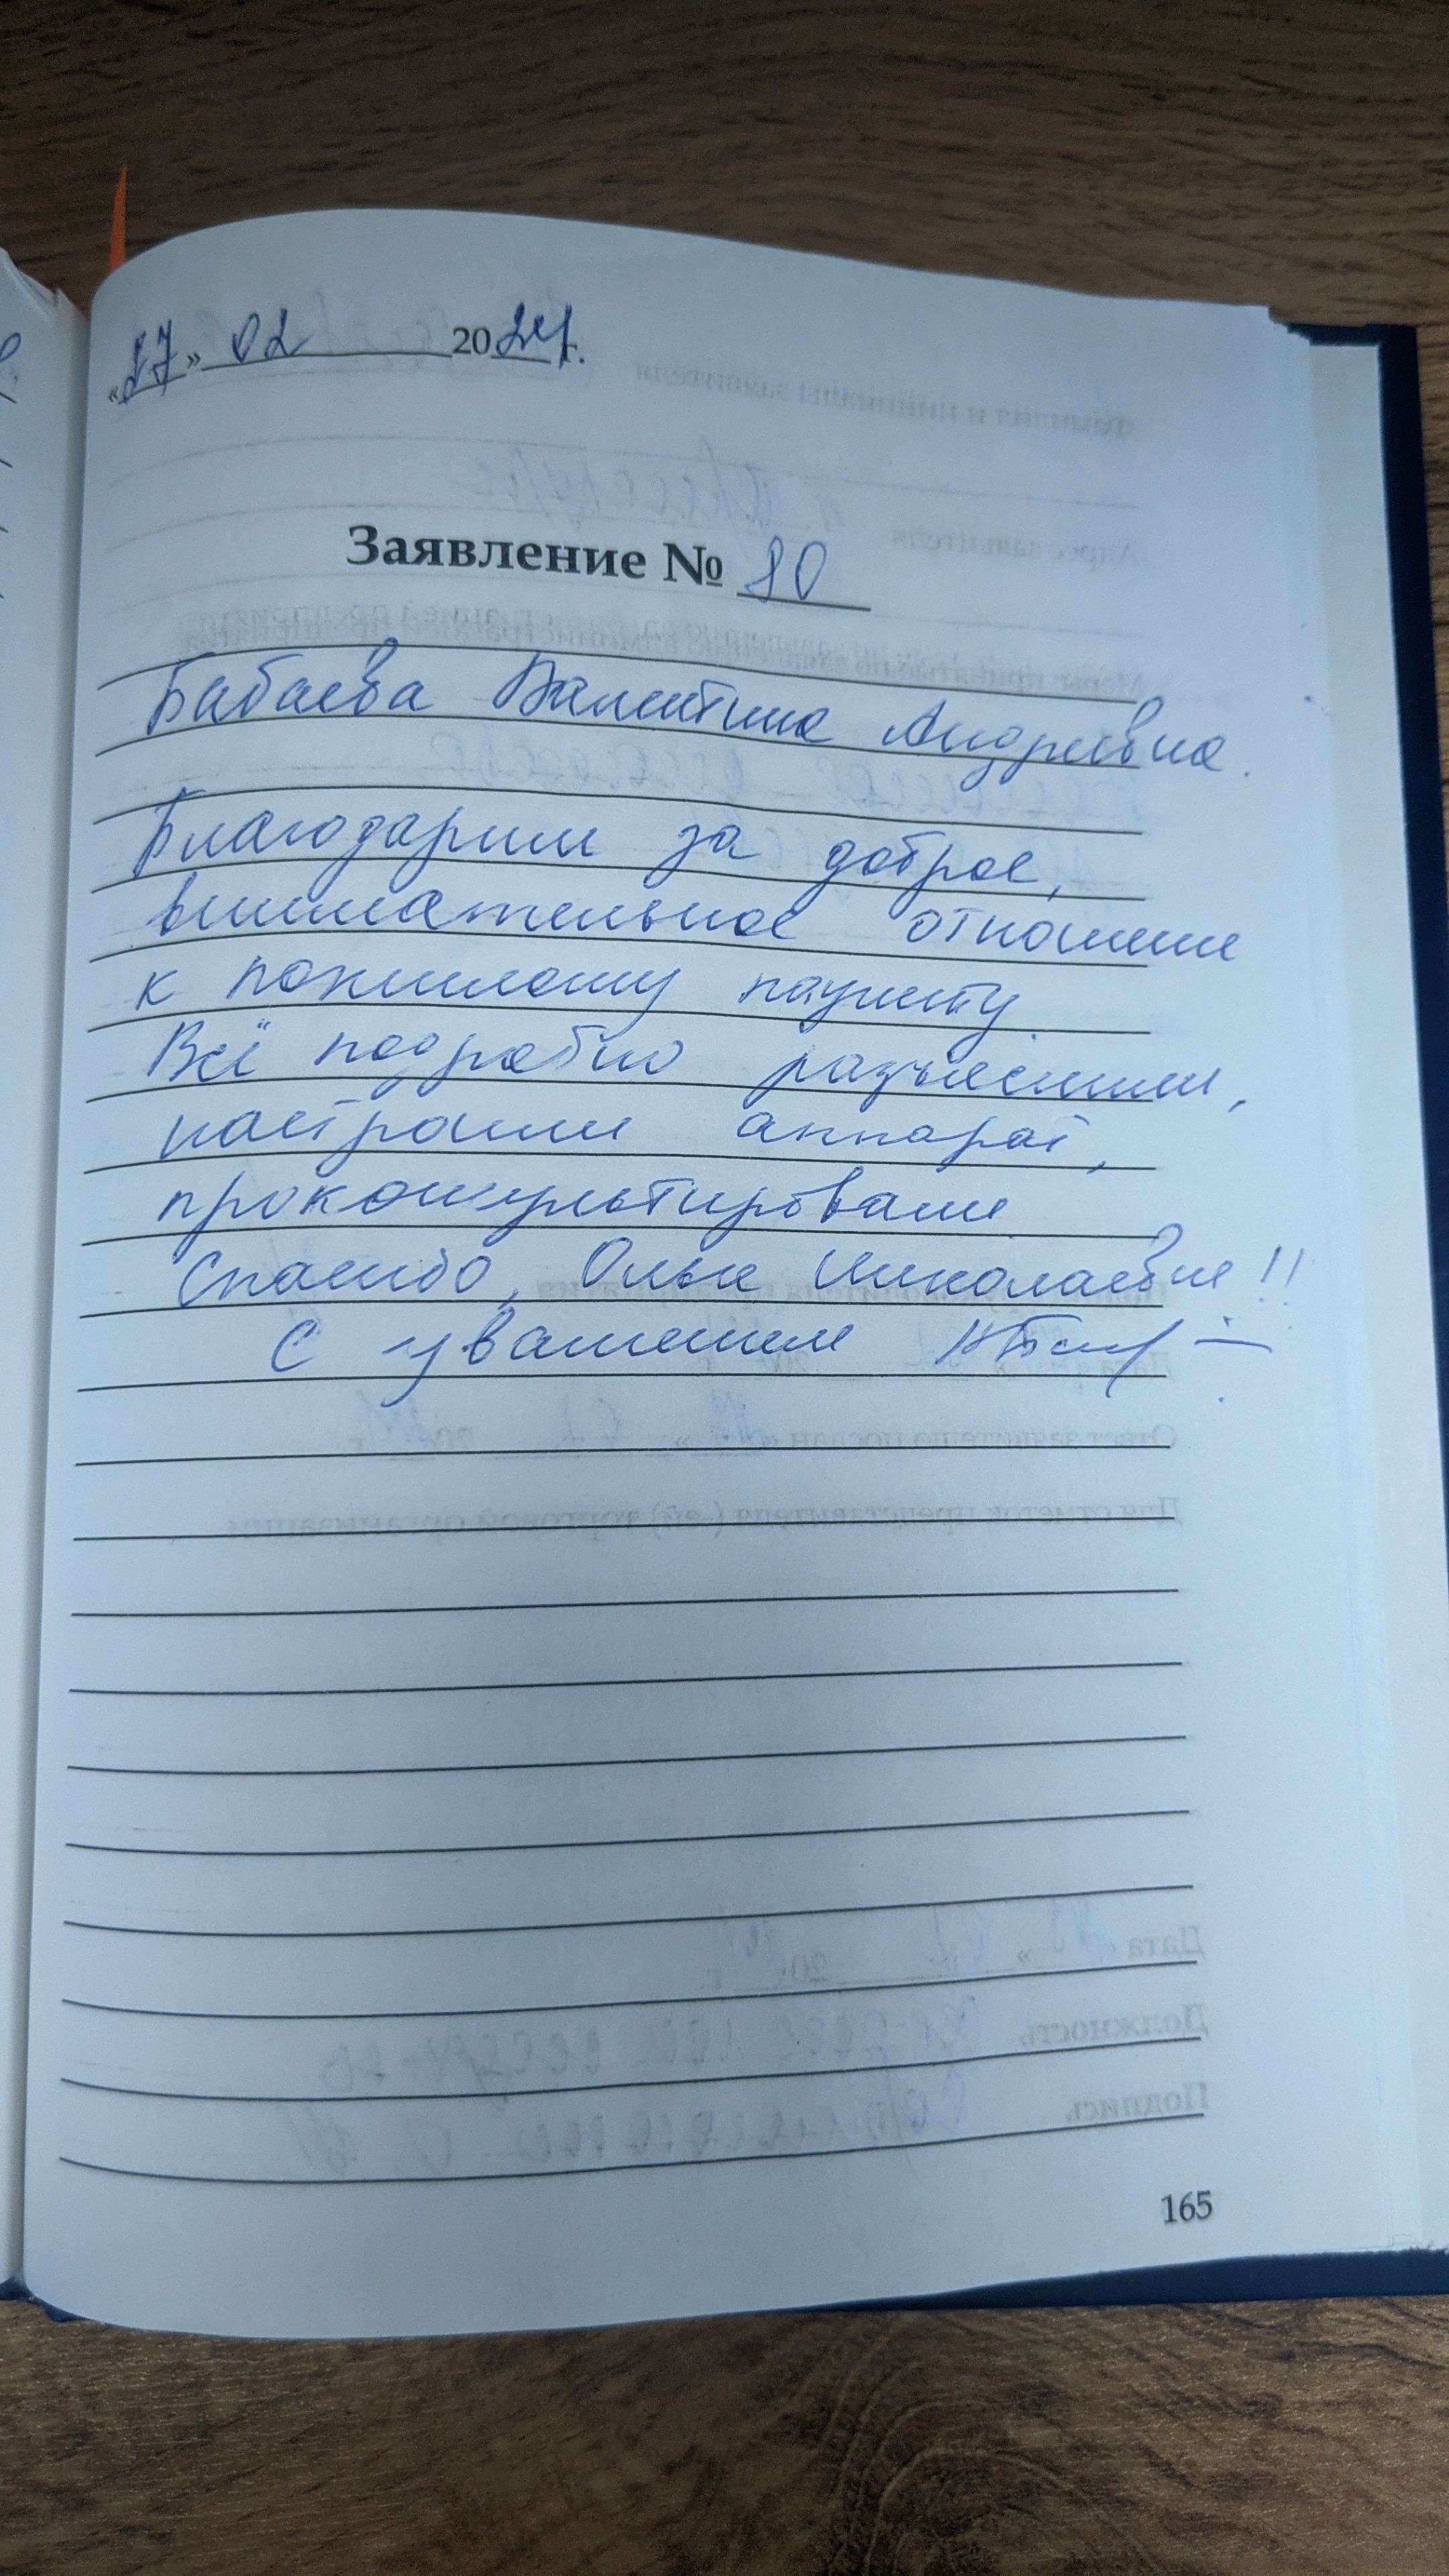 «27» 02 2024г.
Заявление № 80
Бабаева Валентина Андреевна.
Благодарим за доброе,
внимательное отношение
к пожилому пациенту.
Всё подробно разъяснили,
настроили аппарат,
проконсультировали
Спасибо, Ольге Николаевне!!
С уважением
165